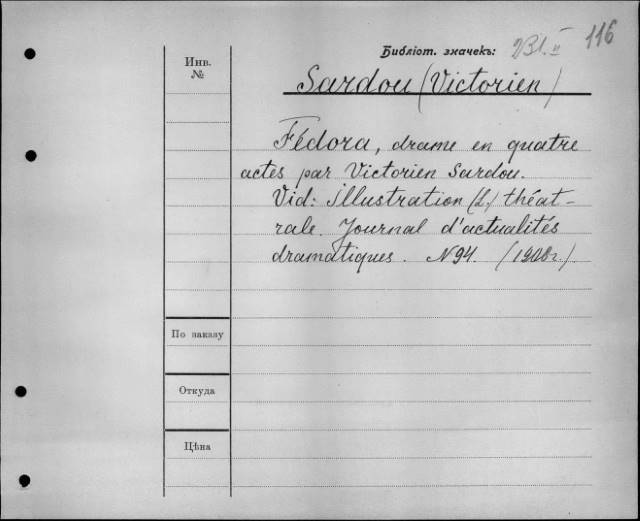 116
Библіот. значекъ: 231. II
Инв.
№
Sardou (Victorien)
Fédora, drame en quatre
actes par Victorien Sardou.
Vid: illustration (L.) théat-
rale. Journal d'actualités
dramatiques. N 94. (1908г.)
По заказу
Откуда
Цѣна